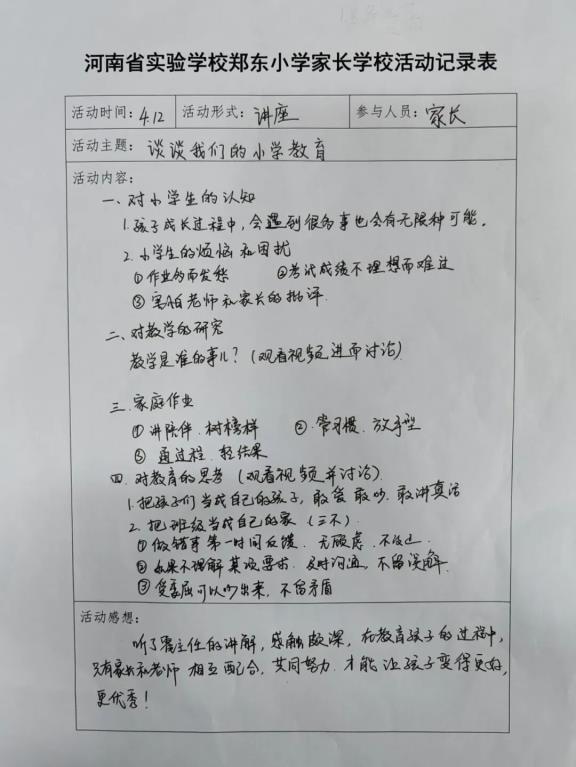 河南省实验学校郑东小学家长学校活动记录表
活动时间：4.12 活动形式：讲座 参与人员：家长
活动主题：谈谈我们的小学教育
活动内容：
一、对小学生的认知
1.孩子成长过程中，会遇到很多事也会有无限种可能。
2.小学生的烦恼和困扰
①作业多而发愁 ②考试成绩不理想而难过
③害怕老师和家长的批评
二、对教学的研究
教学是谁的事儿？（观看视频进而讨论）
三、家庭作业
①讲陪伴、树榜样 ②常习惯、放手型
③通过程、轻结果
四、对教育的思考（观看视频并讨论）
1.把孩子们当成自己的孩子，敢爱敢吵、敢讲真话
2.把班级当成自己的家（三不）
①做错事第一时间反馈、无顾虑、不
②如果不理解某项要求、及时沟通，不留误解.
③受委屈可以吵出来，不留矛盾
活动感想：
听了主任的讲解，感触颇深，在教育孩子的过程中，
只有家长和老师相互配合，共同努力.才能让孩子变得更好，
更优秀！